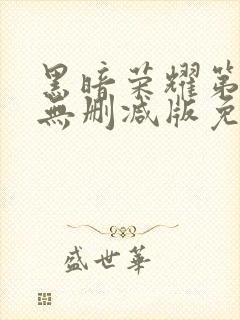 黑暗荣耀第
無删减版免
盛世華